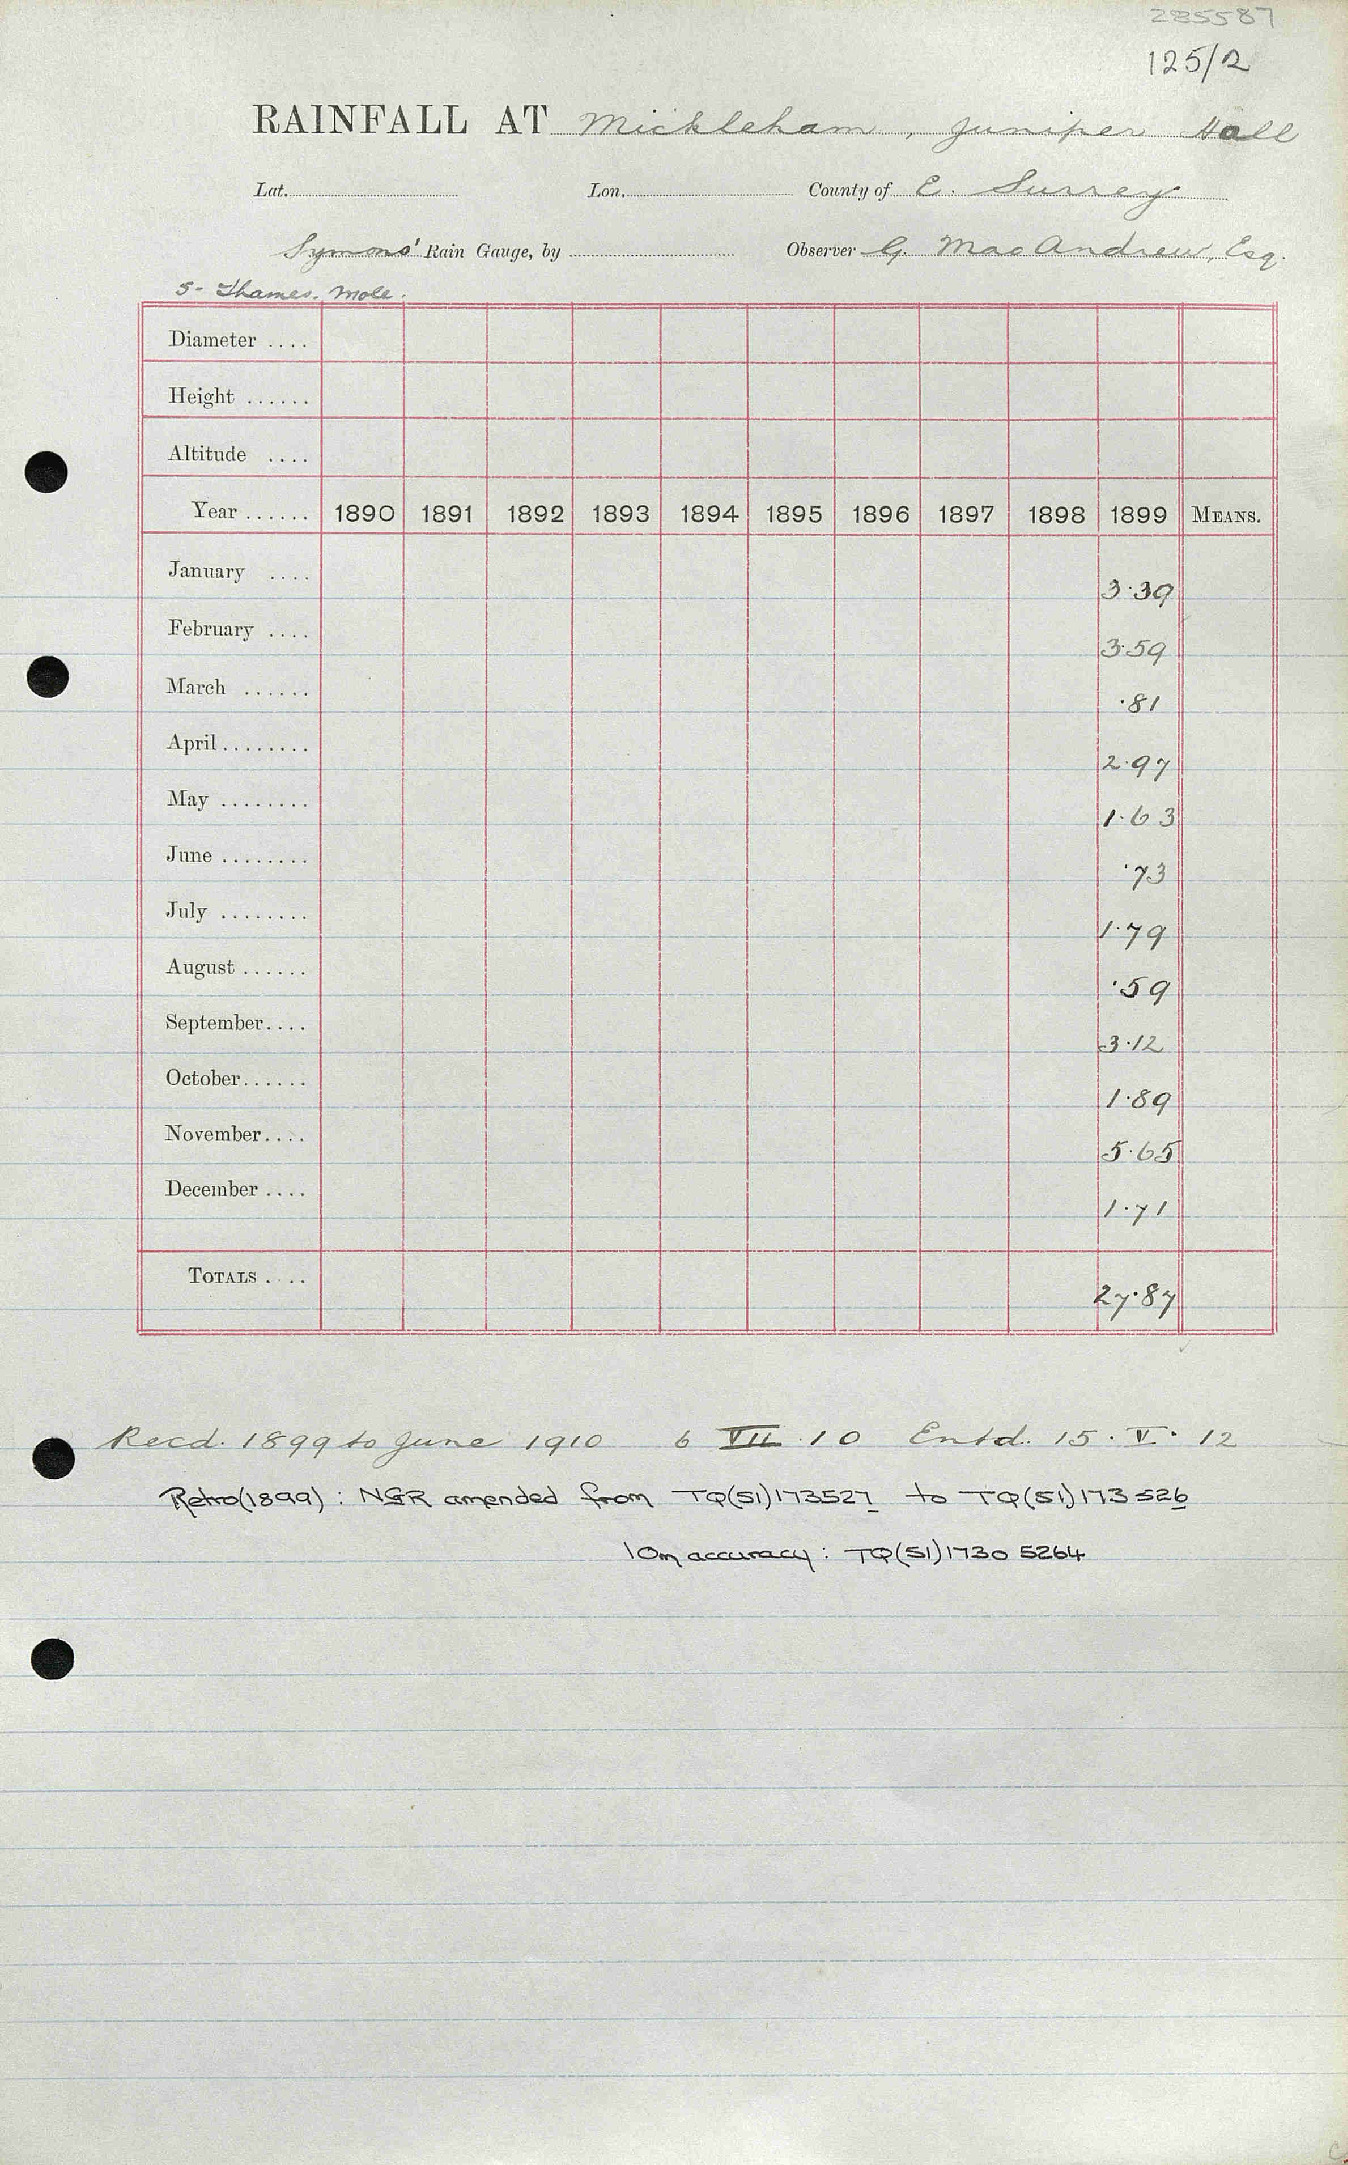 285587
125/2
RAINFALL AT Mickleham, Juniper Hall
Lat. Lon. County of E. Surrey
Symons' Rain Gauge, by Observer G. MacAndrew, Esq.
5- Thames. Mole.
Diameter ....
Height ......
Altitude ....
Year ...... 1890 1891 1892 1893 1894 1895 1896 1897 1898 1899 MEANS.
January .... 3.39
February .... 3.59
March ...... .81
April ........ 2.97
May ........ 1.63
June ........ .73
July ........ 1.79
August ...... .59
September.... 3.12
October...... 1.89
November.... 5.65
December .... 1.71
TOTALS .... 27.87
Recd. 1899 to June 1910 6 VII 10 Entd. 15.V.12
Retro(1899) : NGR amended from TQ(51)173527 to TQ(51)173526
10m accuracy : TQ(51)1730 5264